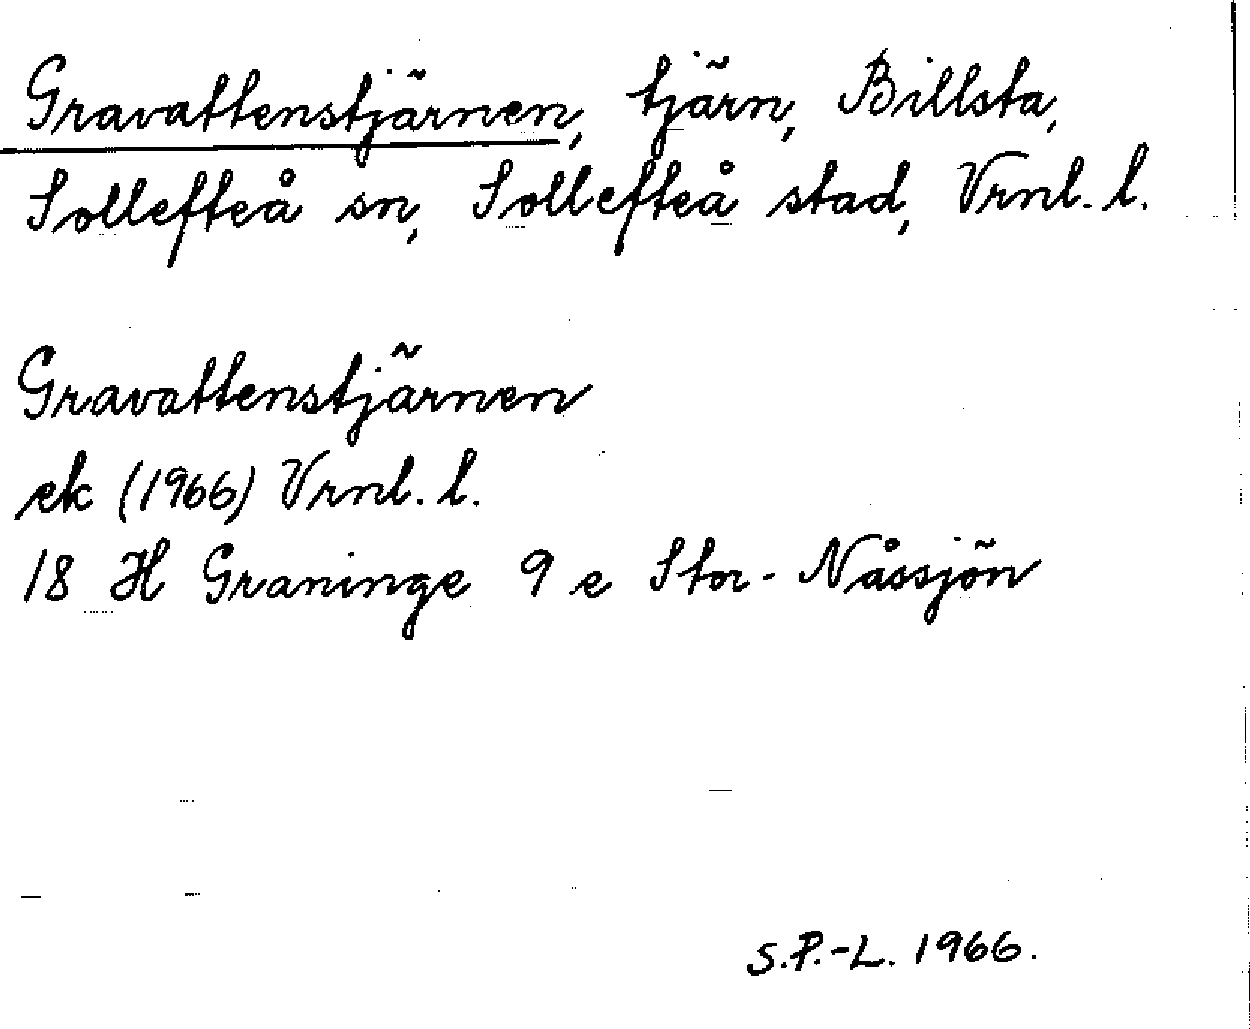 Gravattenstjärnen, tjärn, Billsta,
Sollefteå sn, Sollefteå stad, Vrnl. l.
Gravattenstjärnen
ek (1966) Vrnl. l.
18 H Graninge 9 e Stor-Nåssjön
S.P.-L. 1966.